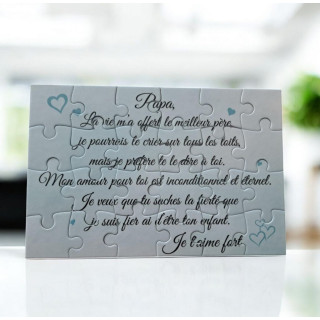 Papa,
La vie m'a offert le meilleur père,
je pourrais le crier sur tous les toits,
mais je préfère te le dire à toi.
Mon amour pour toi est inconditionnel et éternel.
Je veux que tu saches la fierté que
j'ai d'être ton enfant.
Je t'aime fort